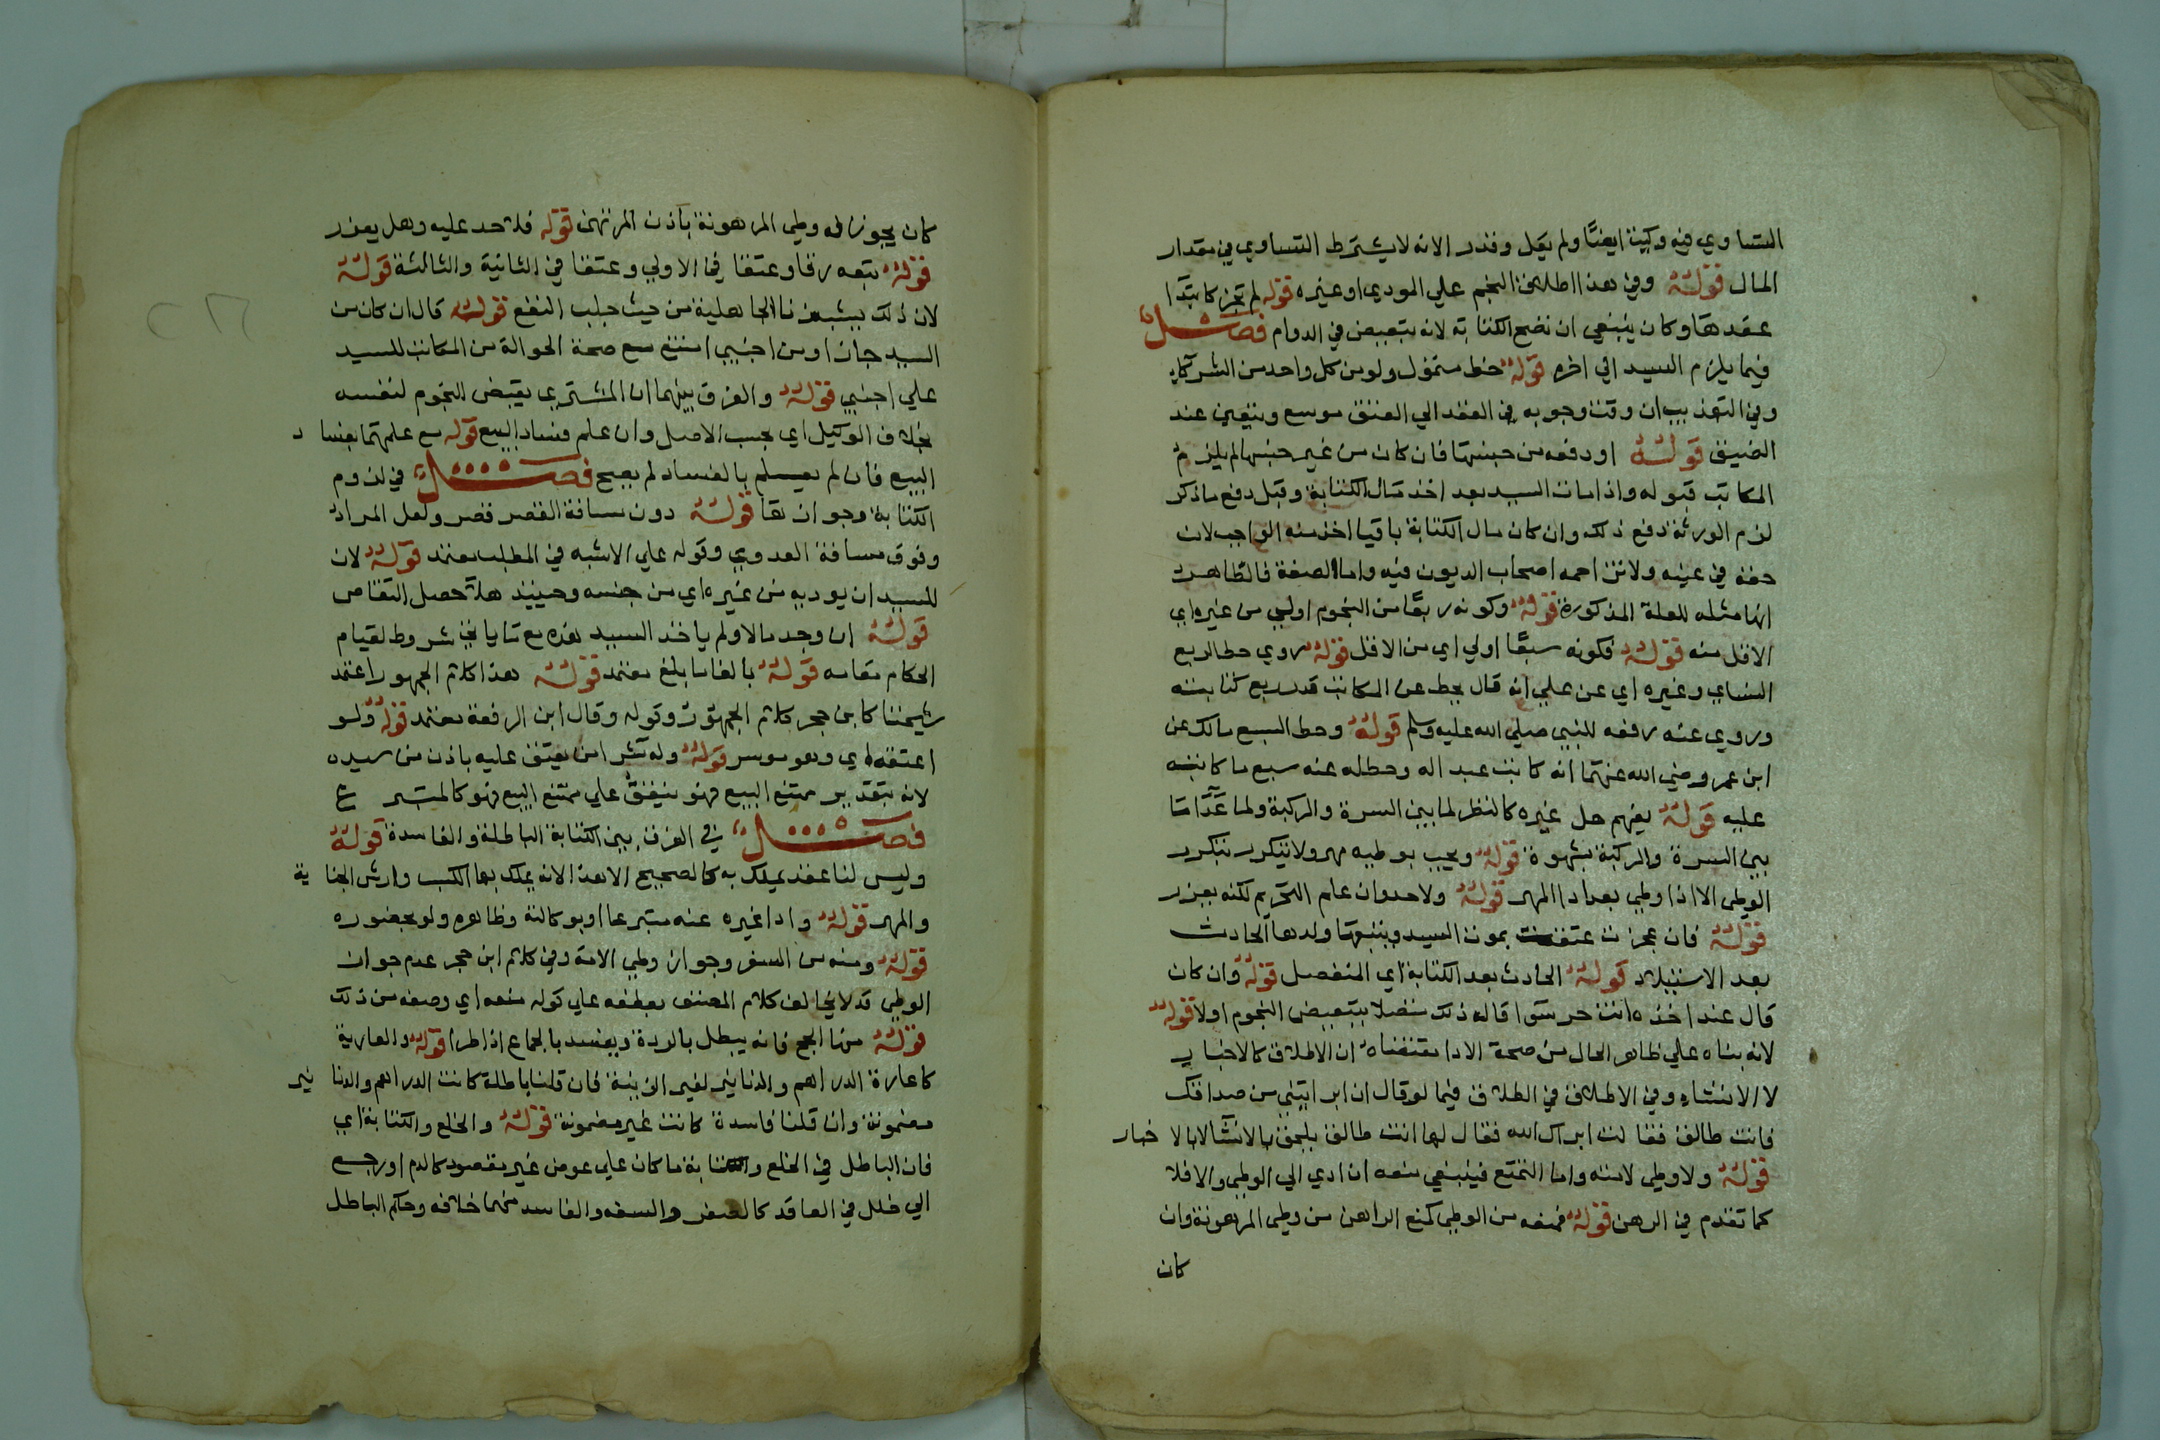 التساوي فيه وكيت ايضًا ولم يقل وقدر الا انه لا يشترط التساوي في مقدار
المال قوله وفي هذا اطلاق النجم علي المودي او غيره قوله لم تجز كابتدا
عقدها وكان ينبغي ان تصح الكتابة لانه تبعيض في الدوام فصل
فيما يلزم السيد الي اخره قوله حط متمول ولو من كل واحد من الشركاء
وفي التهذيب ان وقت وجوبه في العقد الي العتق موسع ويتعين عند
الضيق قوله او دفعه من جنسها فان كان من غير جنسها لم يلزم
المكاتب قبوله واذا مات السيد بعد اخذ مال الكتابة وقبل دفع ما ذكر
لزم الورثة دفع ذلك وان كان مال الكتابة باقيا اخذ منه الواجب لان
حقه في عينه ولا تزاحمه اصحاب الديون فيه واما الصفة فالظاهر
انها مثله للعلة المذكورة قوله وكونه ربعًا من النجوم اولي من غيره اي
الاقل منه قوله فكونه سبعًا اولي اي من الاقل قوله روي حط الربع
النساي وغيره اي عن علي انه قال يحط عن المكاتب قدر ربع كتابته
وروي عنه رفعه للنبي صلي الله عليه وسلم قوله وحط السبع مالك عن
ابن عمر رضي الله عنهما انه كاتب عبد اله وحط له عنه سبع ما كاتبه
عليه قوله يفهم حل غيره كالنظر لما بين السرة والركبة ولما عدا ما
بين السرة والركبة بشهوة قوله ويجب بوطيه مهر ولا يتكرر بتكرر
الوطي الا اذا وطي بعد ادا المهر قوله ولا حد وان علم التحريم لكنه يعزر
قوله فان عجزت عتقت بموت السيد ويتبعها ولدها الحادث
بعد الاستيلاد قوله الحادث بعد الكتابة اي المنفصل قوله وان كان
قال عند اخذه انت حر سوا قاله ذلك متصلا بتبعيض النجوم او لا قوله
لانه بناه علي ظاهر الحال من صحة الادا مقتضاه ان الاطلاق كالاخبار
لا الانشاء وفي الاطلاق في الطلاق فيما لو قال ان ابراتيني من صداقك
فانت طالق فقالت ابراك الله فقال لها انت طالق يلحق بالانشا لا بالاخبار
قوله ولا وطي لامته واما التمتع فينبغي منعه ان ادي الي الوطي والا فلا
كما تقدم في الرهن قوله فمنعه من الوطي كمنع الراهن من وطي المرهونة وان
كان
كان يجوز له وطي المرهونة باذن المرتهن قوله فلا حد عليه وهل يعزر
قوله تبعه رقا وعتقا في الاولي وعتقا في الثانية والثالثة قوله
لان ذلك يشبه ربا الجاهلية من حيث جلب النفع قوله كال ان كان من
السيد جاز او من اجنبي امتنع مع صحة الحوالة من المكاتب للسيد
علي اجنبي قوله والفرق بينهما ان المشتري يقبض النجوم لنفسه
بخلاف الوكيل اي بحسب الاصل وان علم فساد البيع قوله مع علمهما بفساد
البيع فان لم يعلم بالفساد لم يصح فصل في لزوم
الكتابة وجوازها قوله دون مسافة القصر قصر ولعل المراد
وفوق مسافة العدوي وقوله علي الاشبه في المطلب معتمد قوله لان
للسيد ان يوديه من غيره اي من جنسه وحينئذ هلا حصل التقاص
قوله ان وجد مالا ولم ياخذ السيد بعزه مع ما ياتي في شروط لقيام
الحكام مقامه قوله بالغا ما بلغ معتمد قوله هذا كلام الجمهور اعتمد
شيخنا كابن حجر كلام الجمهور وقوله وقال ابن الرفعة معتمد قوله ولو
اعتقه اي وهو موسر قوله وله شرا من يعتق عليه باذن من سيده
لانه بتقدير ممتنع البيع فهو ينفق علي ممتنع البيع فهو كالمتبرع
فصل في الفرق بين الكتابة الباطلة والفاسدة قوله
وليس لنا عقد يملك به كالصحيح الا هذا لانه يملك بها الكسب وارش الجناية
والمهر قوله وادا غيره عنه متبرعا او بوكالته وظاهره ولو بحضوره
قوله ومنعه من السفر وجواز وطي الامة وفي كلام ابن حجر عدم جواز
الوطي قد لا يخالف كلام المصنف بعطفه علي قوله منعه اي وصفه من ذلك
قوله منها الحج فانه يبطل بالردة ويفسد بالجماع اذا طرا قوله والعارية
كاعارة الدراهم والدنانير لغير الزينة فان قلنا باطلة كانت الدراهم والدنانير
مضمونة وان قلنا فاسدة كانت غير مضمونة قوله والخلع والكتابة اي
فان الباطل في الخلع والكتابة ما كان علي عوض غير مقصود كالدم او رجع
الي خلل في العاقد كالصغر والسفه والفاسد منهما خلافه وحكم الباطل